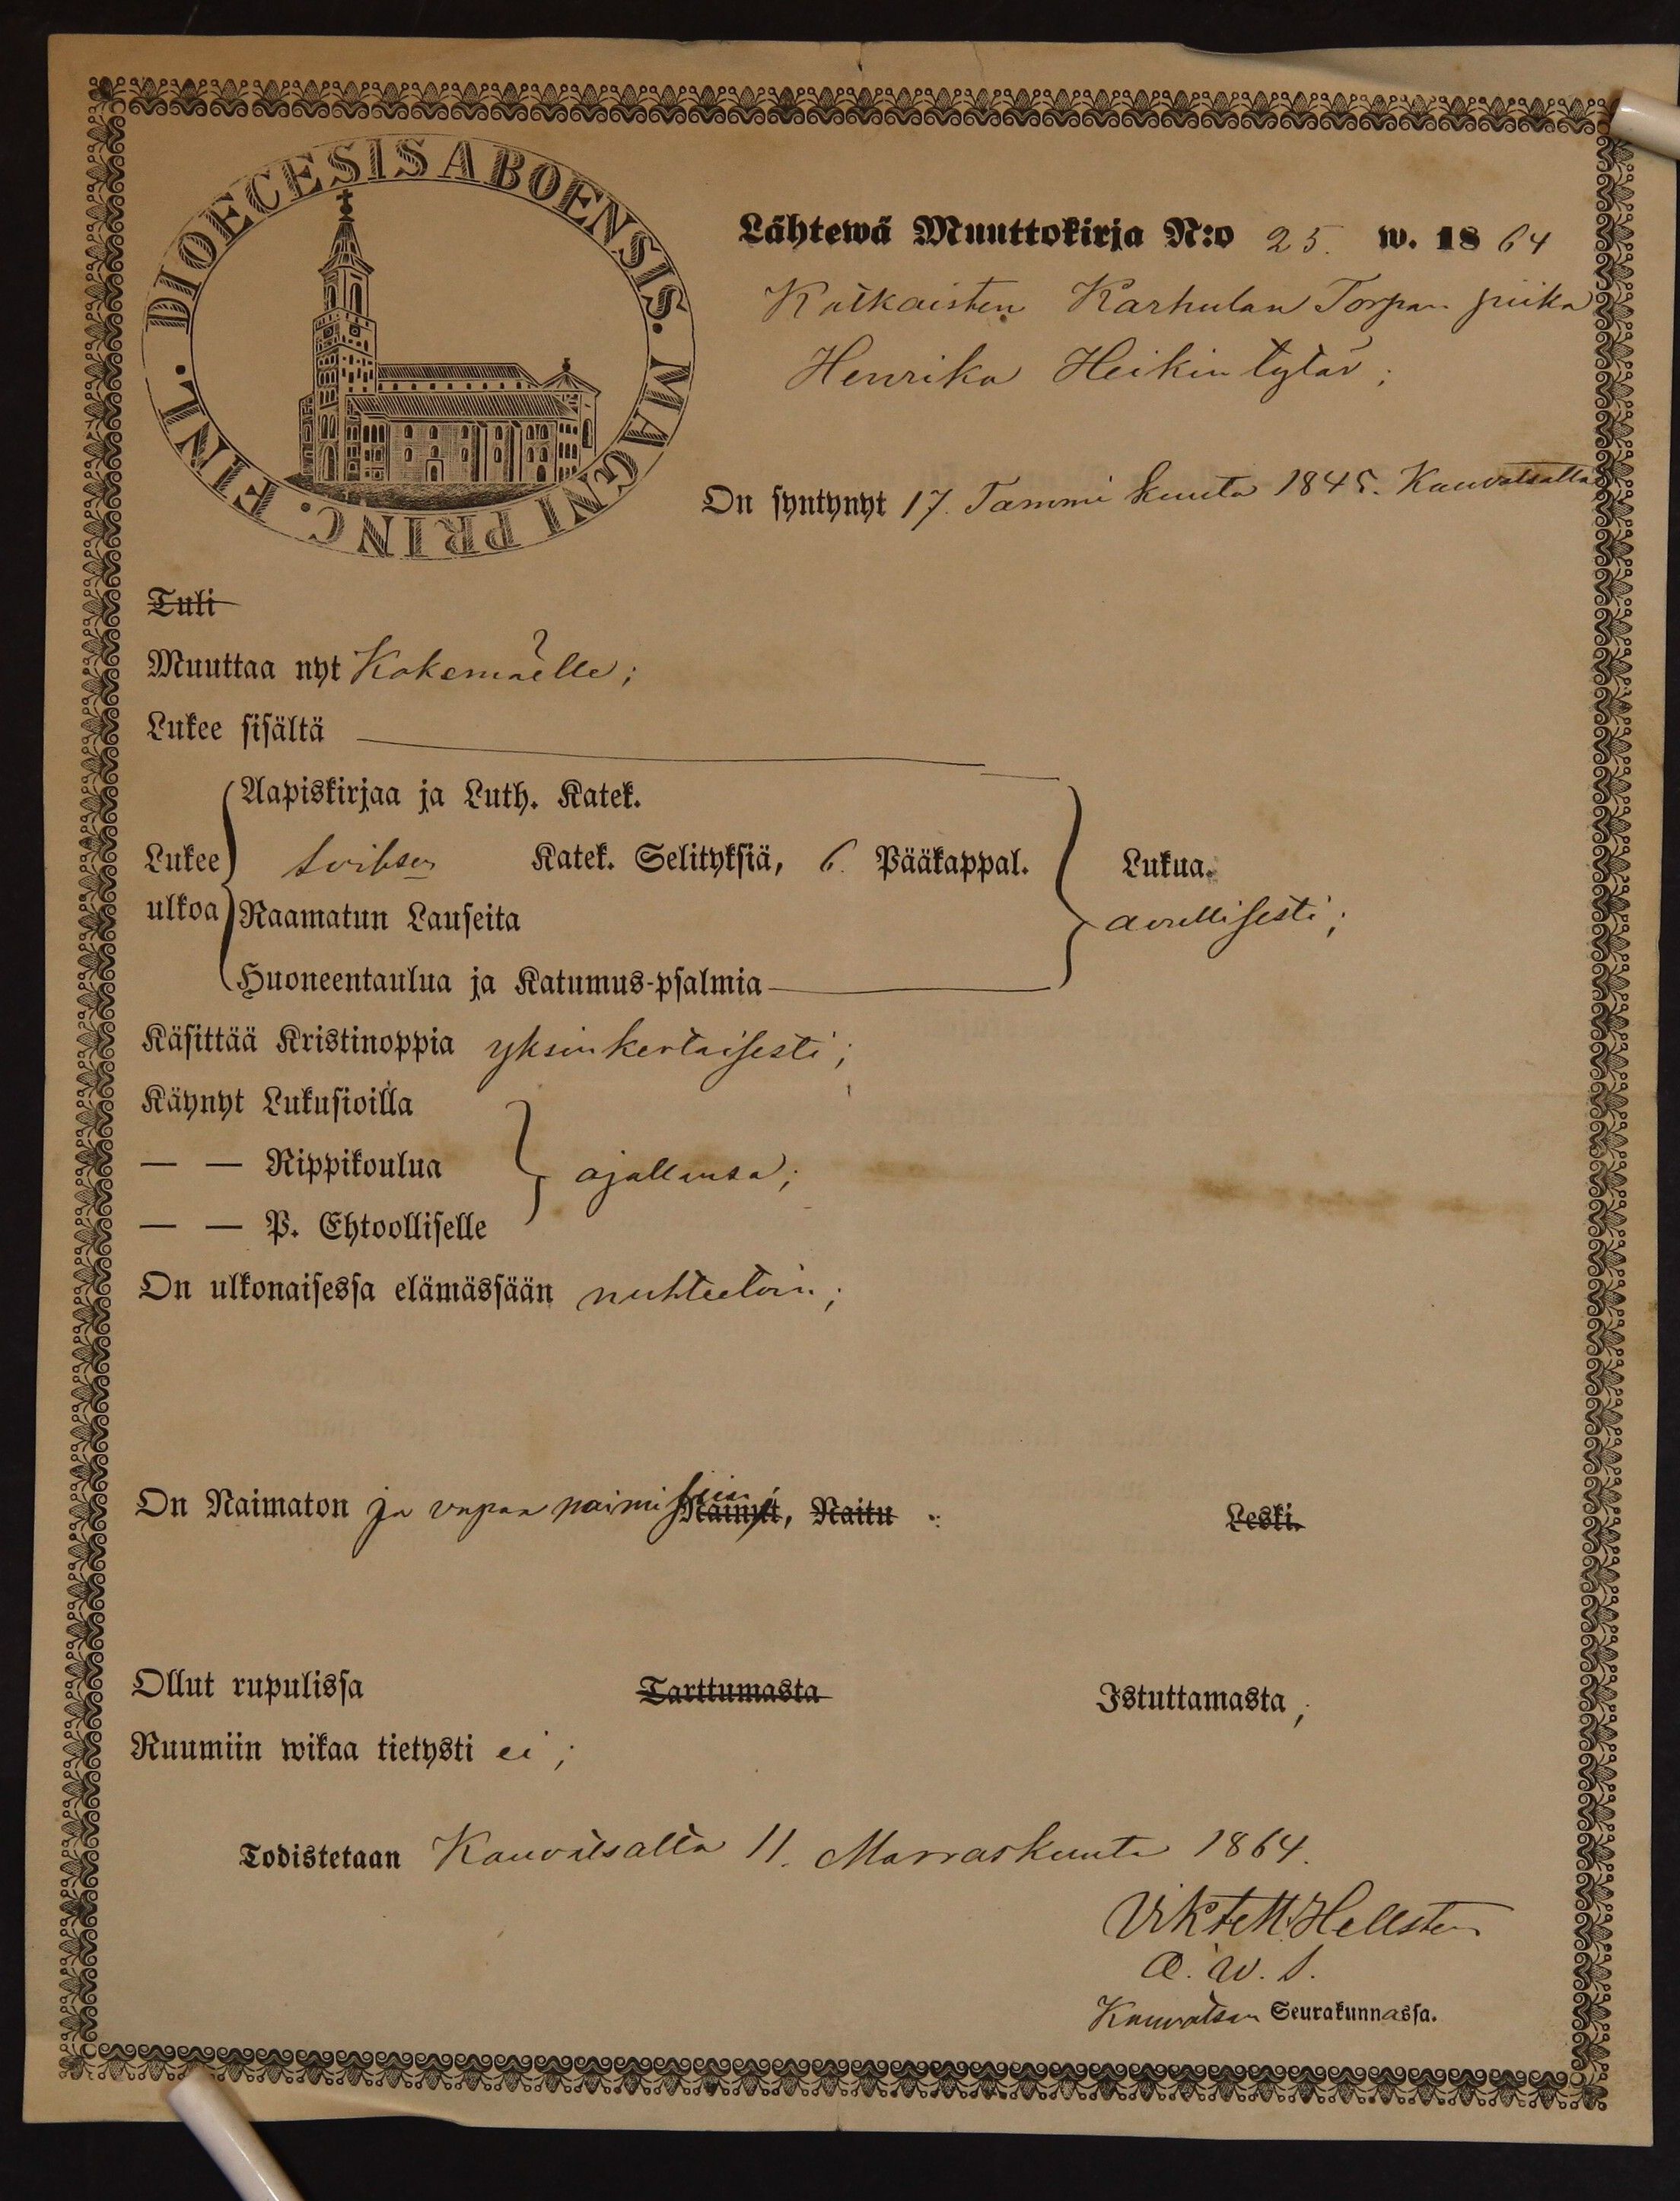 DIOECESIS ABOENSIS. MAGNI PRINC. FINL.
Lähtewä Muuttokirja N:o 25. w. 1864
Karhulan Torpan piika
Henrika Heikin tytär;
On syntynyt 17. Tammi kuuta 1845. Kauvatsalla
Tuli
Muuttaa nyt Kokemäelle;
Lukee sisältä
Aapiskirjaa ja Luth. Katek.
Lukee Katek. Selityksiä, 6. Pääkappal. Lukua.
ulkoa Raamatun Lauseita avullisesti;
Huoneentaulua ja Katumus-psalmia
Käsittää Kristinoppia yksinkertaisesti;
Käynyt Lukusioilla
— — Rippikoulua ajallansa;
— — P. Ehtoolliselle
On ulkonaisessa elämässään nuhteetoin;
On Naimaton ja vapaa naimisiin; Nainut, Naitu Leski.
Ollut rupulissa Tarttumasta Istuttamasta;
Ruumiin wikaa tietysti ei;
Todistetaan Kauvatsalla 11. Marraskuuta 1864.
Hellsten
Kauvatsan Seurakunnassa.